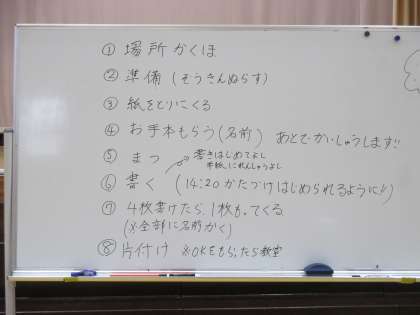 ① 場所かくほ
② 準備 (ぞうきんぬらす)
③ 紙をとりにくる
④ お手本もらう(名前) あとでかいしゅうします!!
⑤ まつ
書きはじめてよし
半紙に れんしゅうよし
⑥ 書く (14:20 かたづけはじめられるように!!)
⑦ 4枚書けたら、1枚もってくる
(※全部に名前かく)
⑧ 片付け ※OKもらったら教室